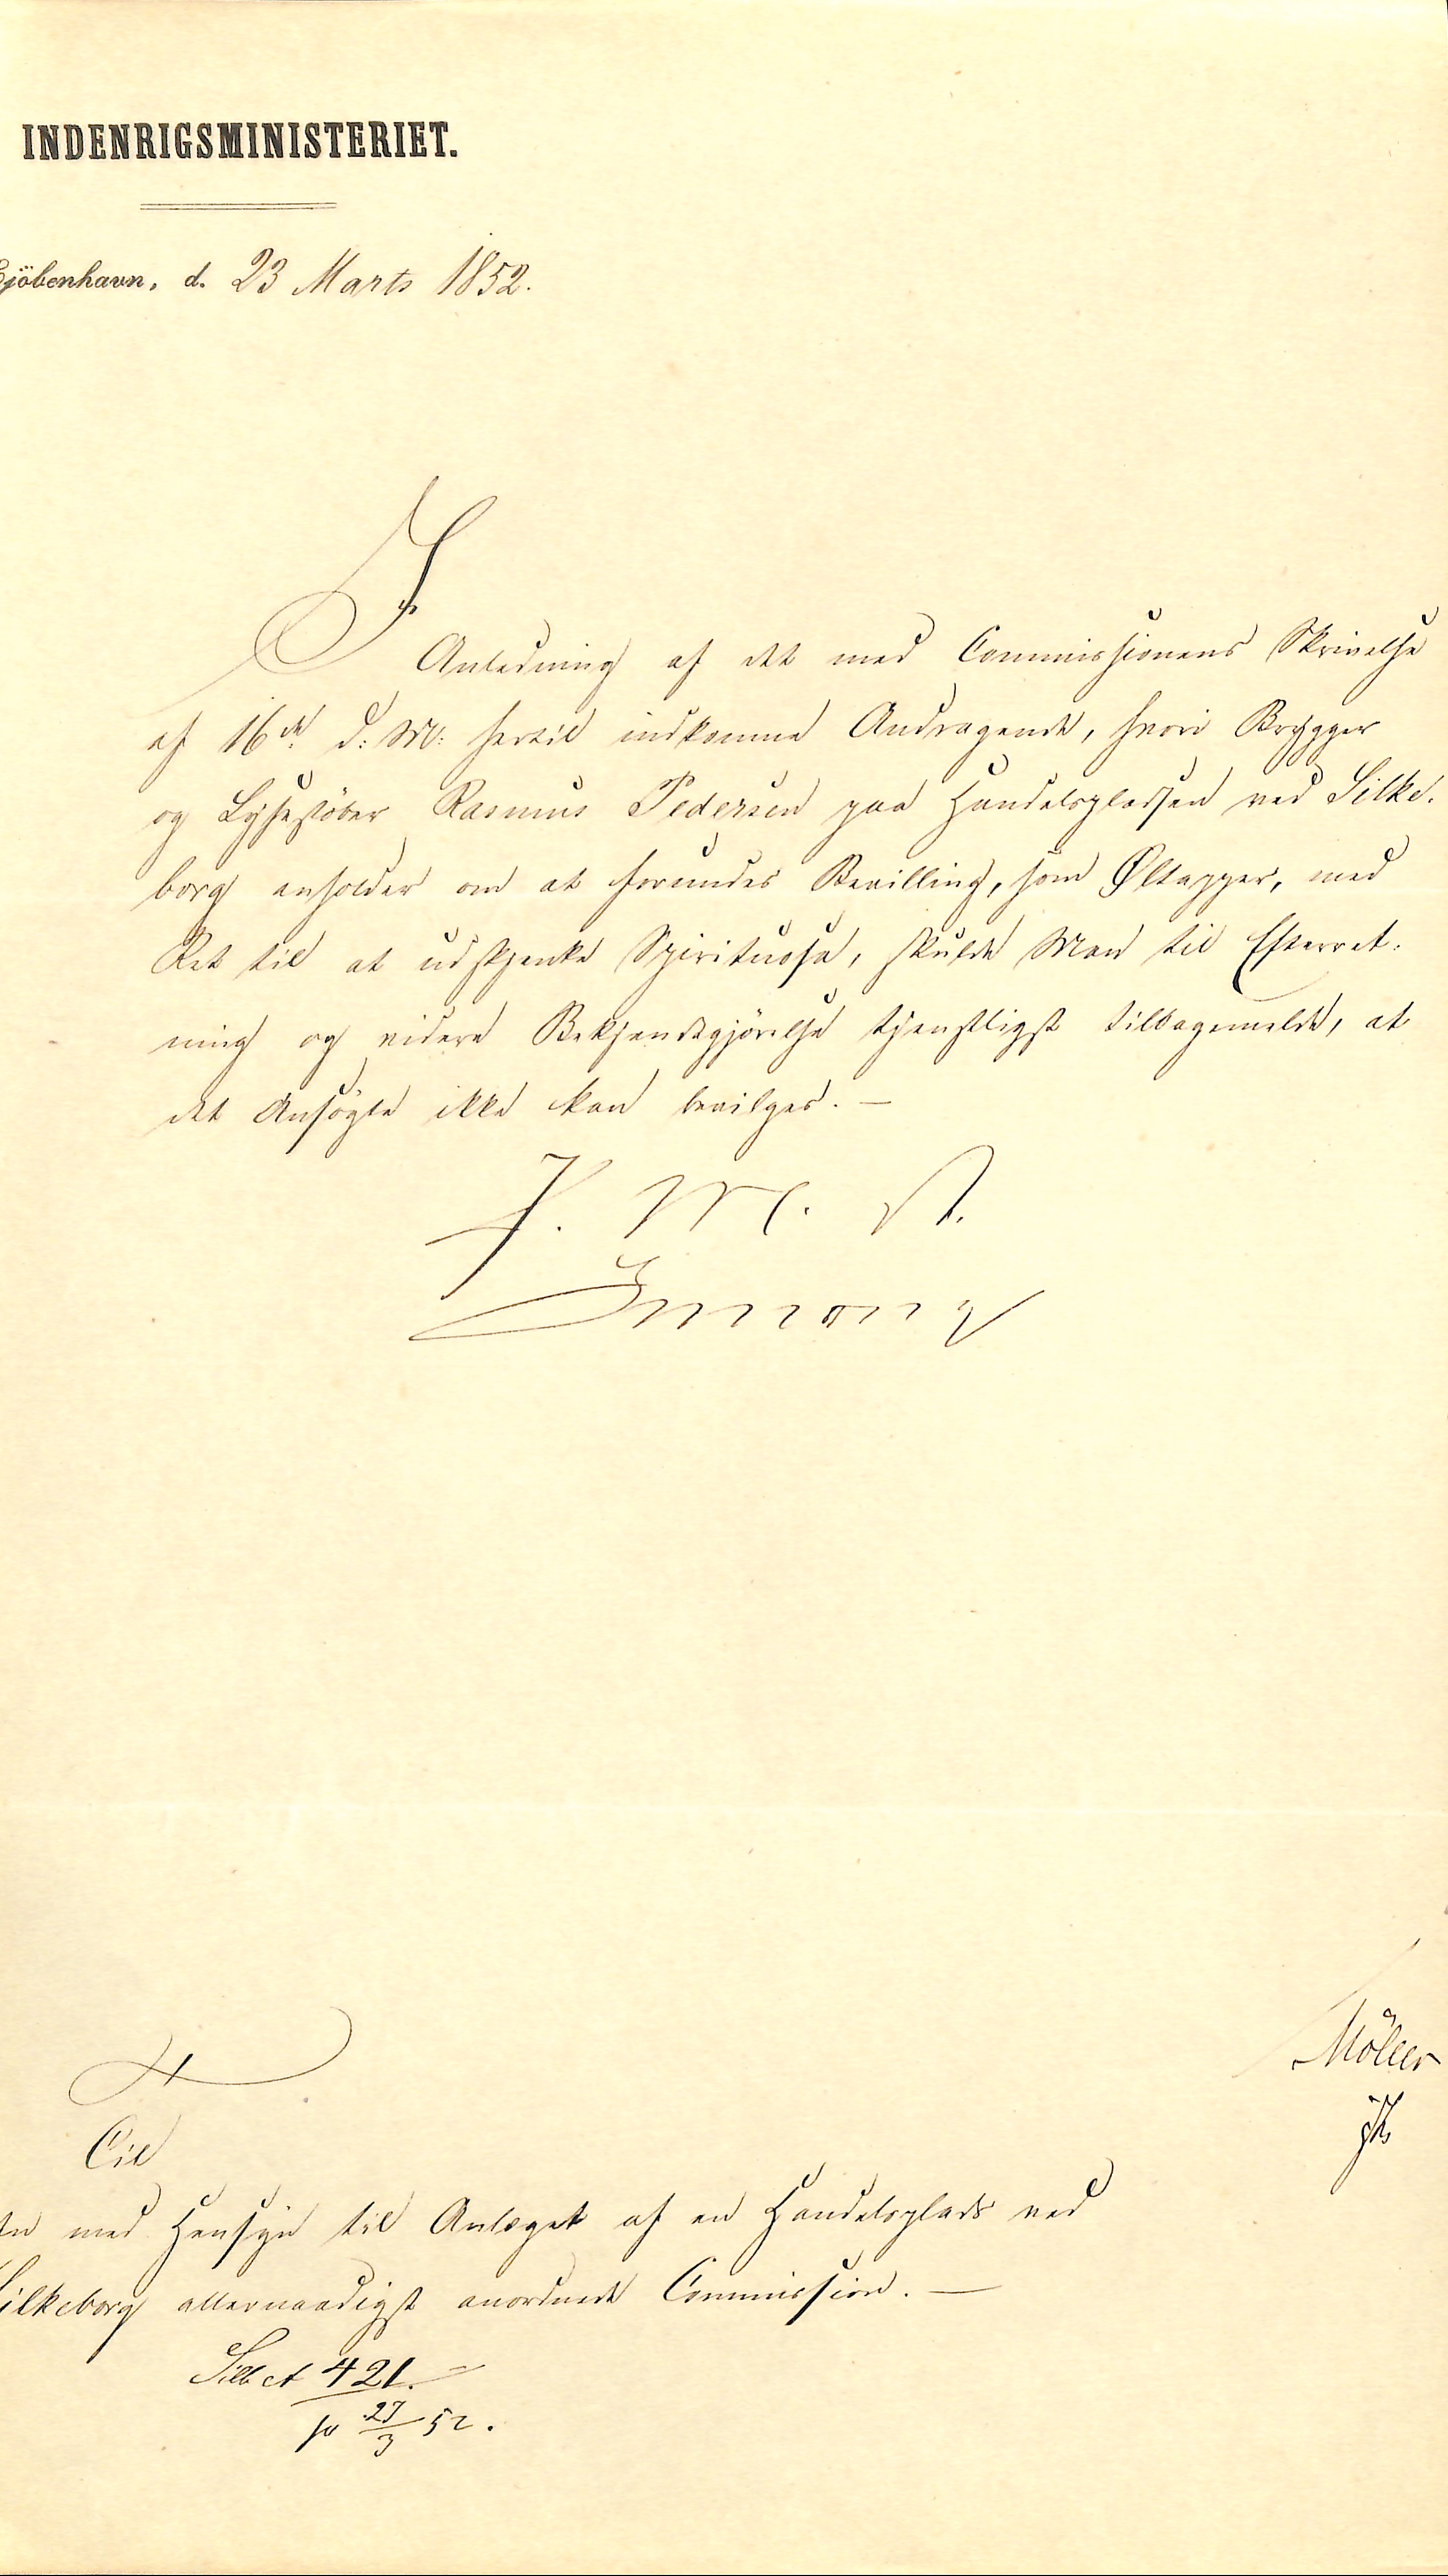 INDENRIGSMINISTERIET.
Kjöbenhavn, d. 23 Marts 1852.
I
Anledning af det med Commissionens Skrivelse
af 16de d: M: hertil indkomne Andragende, hvori Brygger
og Lysestöber Rasmus Pedersen paa Handelspladsen ved Silke-
borg anholder om at forundes Bevilling, som Øltapper, med
Ret til at udskjenke Spirituosa, skulde Man til Efterret-
ning og videre Bekjendtgjörelse tjenstligst tilbagemelde, at
det Ansögte ikke kan bevilges. —
F. M. A.
Möller
Til
den med Hensyn til Anlæget af en Handelsplads ved
Silkeborg allernaadigst anordnede Commission. —
Silb A 421.
pr 27/3 52.